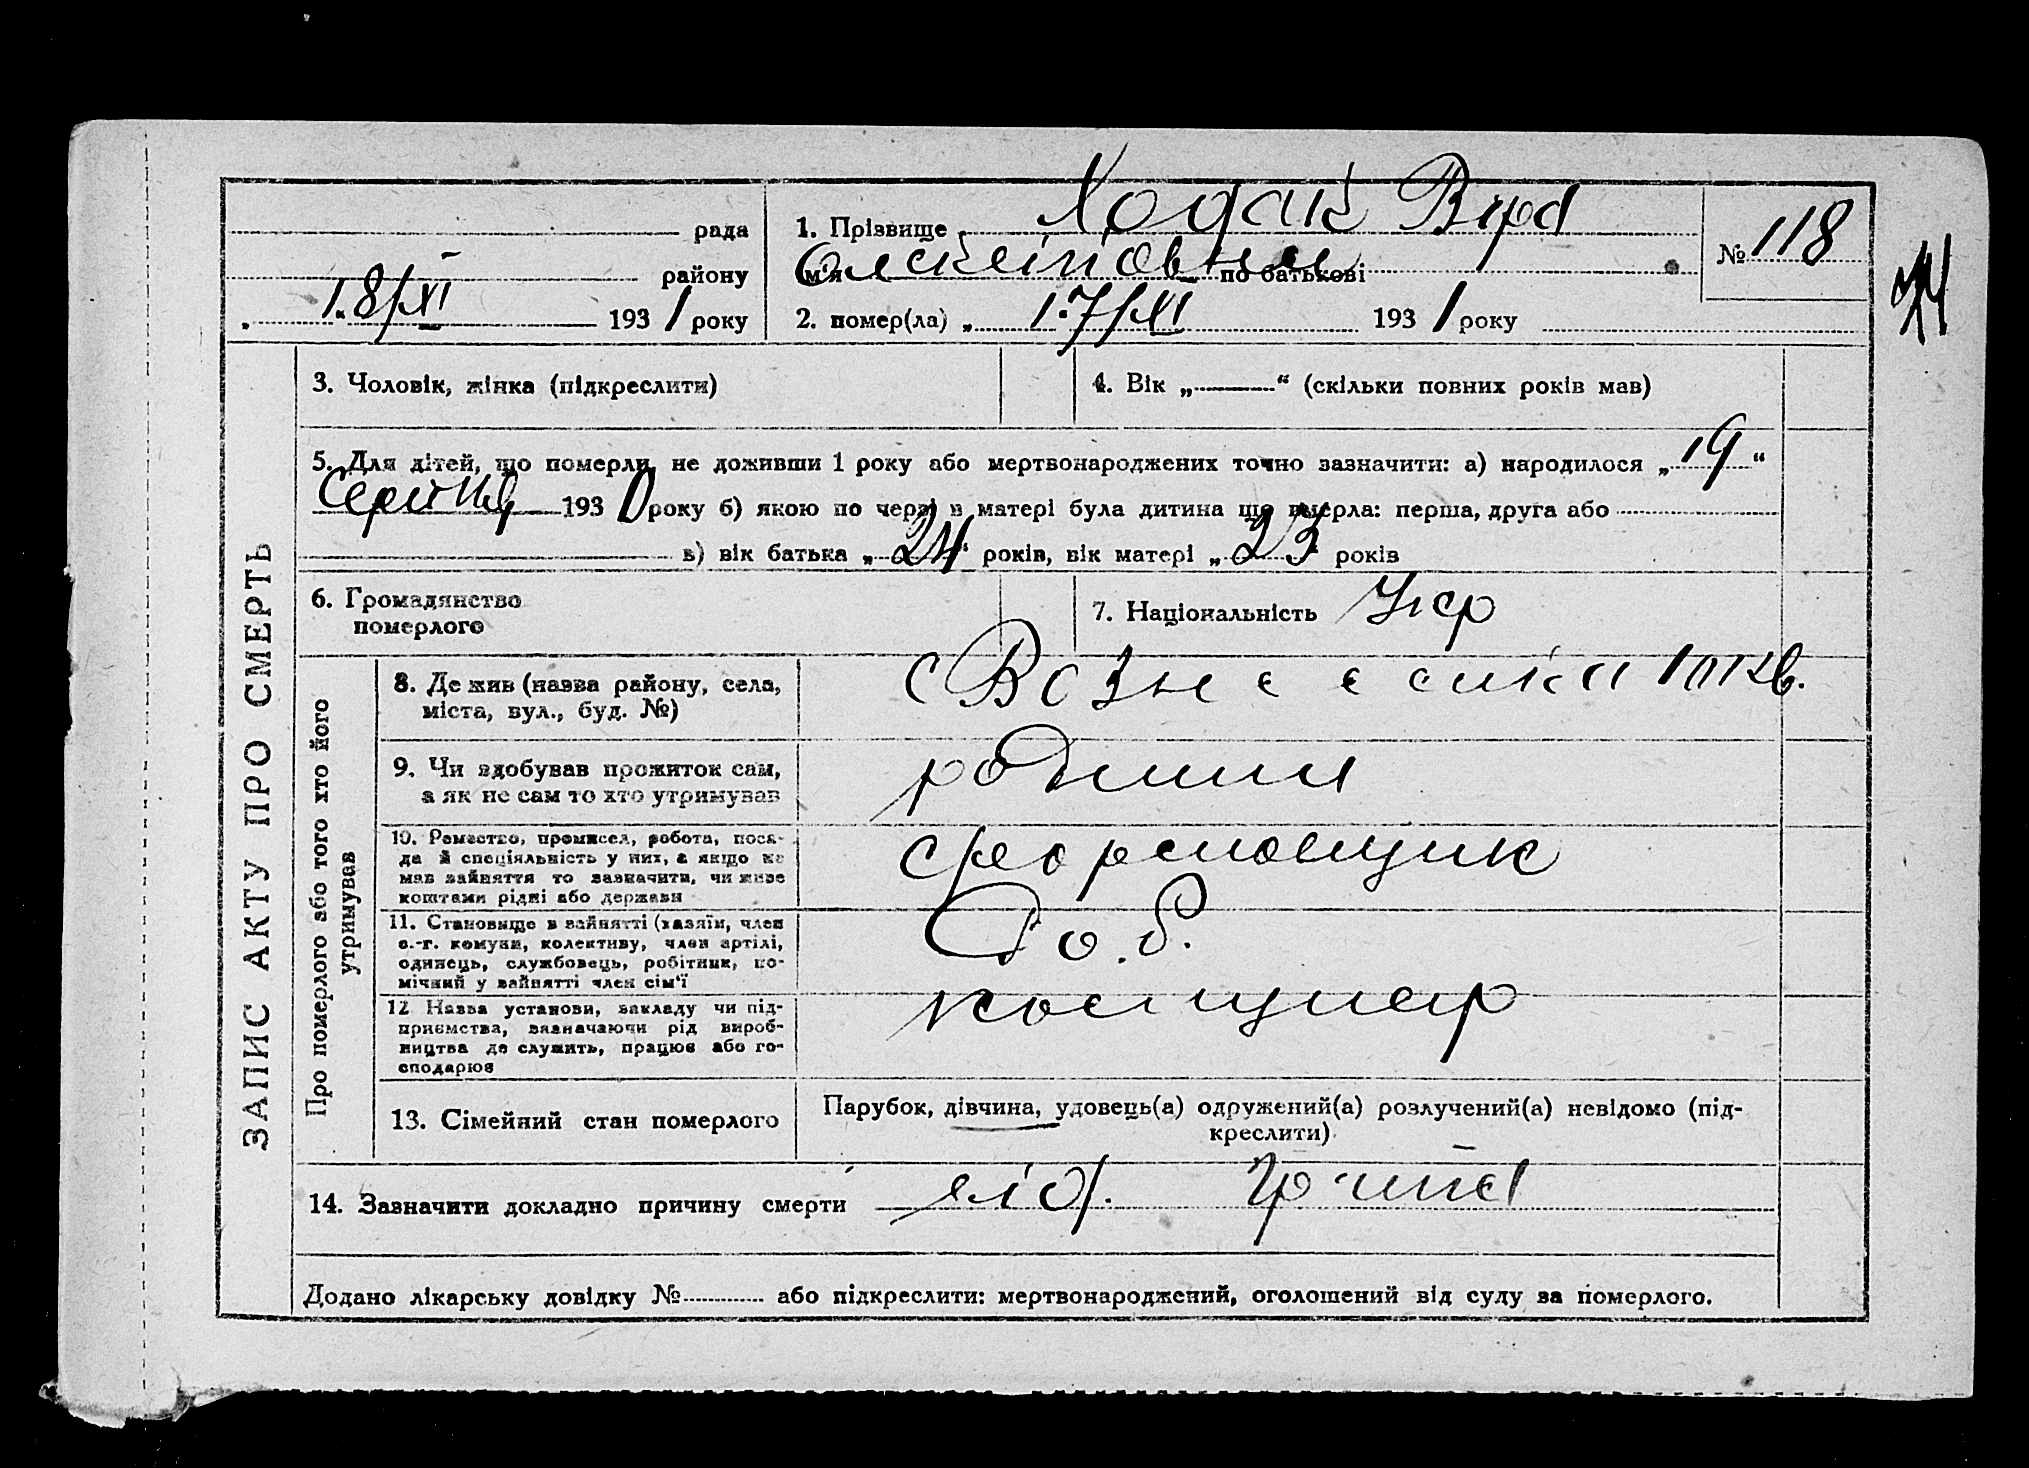 рада
району
18/XI 1931 року
1. Прізвище Ходак Віра
ім'я Олексіївна по батькові
№ 118
2. помер(ла) „ 17/XI 1931 року
3. Чоловік, жінка (підкреслити)
4. Вік „ “ (скільки повних років мав)
5. Для дітей, що померли, не доживши 1 року або мертвонароджених точно зазначити: а) народилося „19“
Серпня 1930 року б) якою по черзі в матері була дитина що вмерла: перша, друга або
в) вік батька „24“ років, вік матері „23“ років
6. Громадянство
померлого
7. Національність Укр
ЗАПИС АКТУ ПРО СМЕРТЬ
Про померлого або того хто його
утримував
8. Де жив (назва району, села,
міста, вул., буд. №)
Вознесенка
9. Чи здобував прожиток сам,
а як не сам то хто утримував
родина
10. Ремество, промисел, робота, поса-
да й спеціяльність у них, а якщо не
мав зайняття то зазначити, чи живе
коштами рідні або держави
формовщик
11. Становище в зайнятті (хазяїн, член
с.-г. комуни, колективу, член артілі,
одинець, службовець, робітник, по-
мічний у зайнятті член сім'ї
Роб.
12 Назва установи, закладу чи під-
приємства, зазначаючи рід вироб-
ництва де служить, працює або го-
сподарює
13. Сімейний стан померлого
Парубок, дівчина, удовець(а) одружений(а) розлучений(а) невідомо (під-
креслити)
14. Зазначити докладно причину смерти
Додано лікарську довідку № або підкреслити: мертвонароджений, оголошений від суду за померлого.